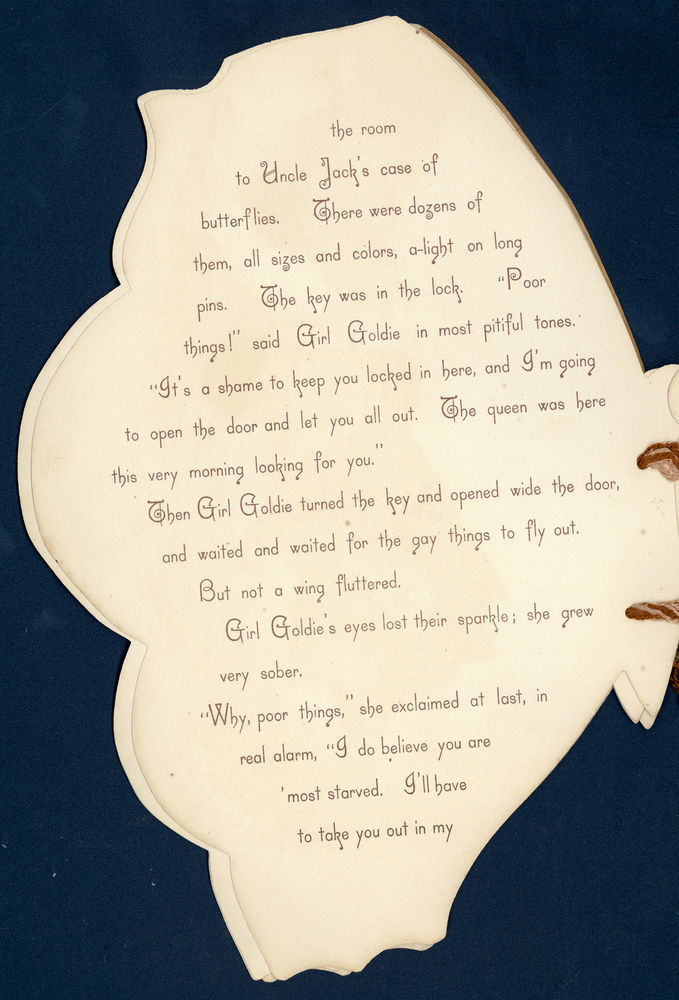 the room
to Uncle Jack's case of
butterflies. There were dozens of
them, all sizes and colors, a-light on long
pins. The key was in the lock. "Poor
things!" said Girl Goldie in most pitiful tones.
"It's a shame to keep you locked in here, and I'm going
to open the door and let you all out. The queen was here
this very morning looking for you."
Then Girl Goldie turned the key and opened wide the door,
and waited and waited for the gay things to fly out.
But not a wing fluttered.
Girl Goldie's eyes lost their sparkle; she grew
very sober.
"Why, poor things," she exclaimed at last, in
real alarm, "I do believe you are
'most starved. I'll have
to take you out in my